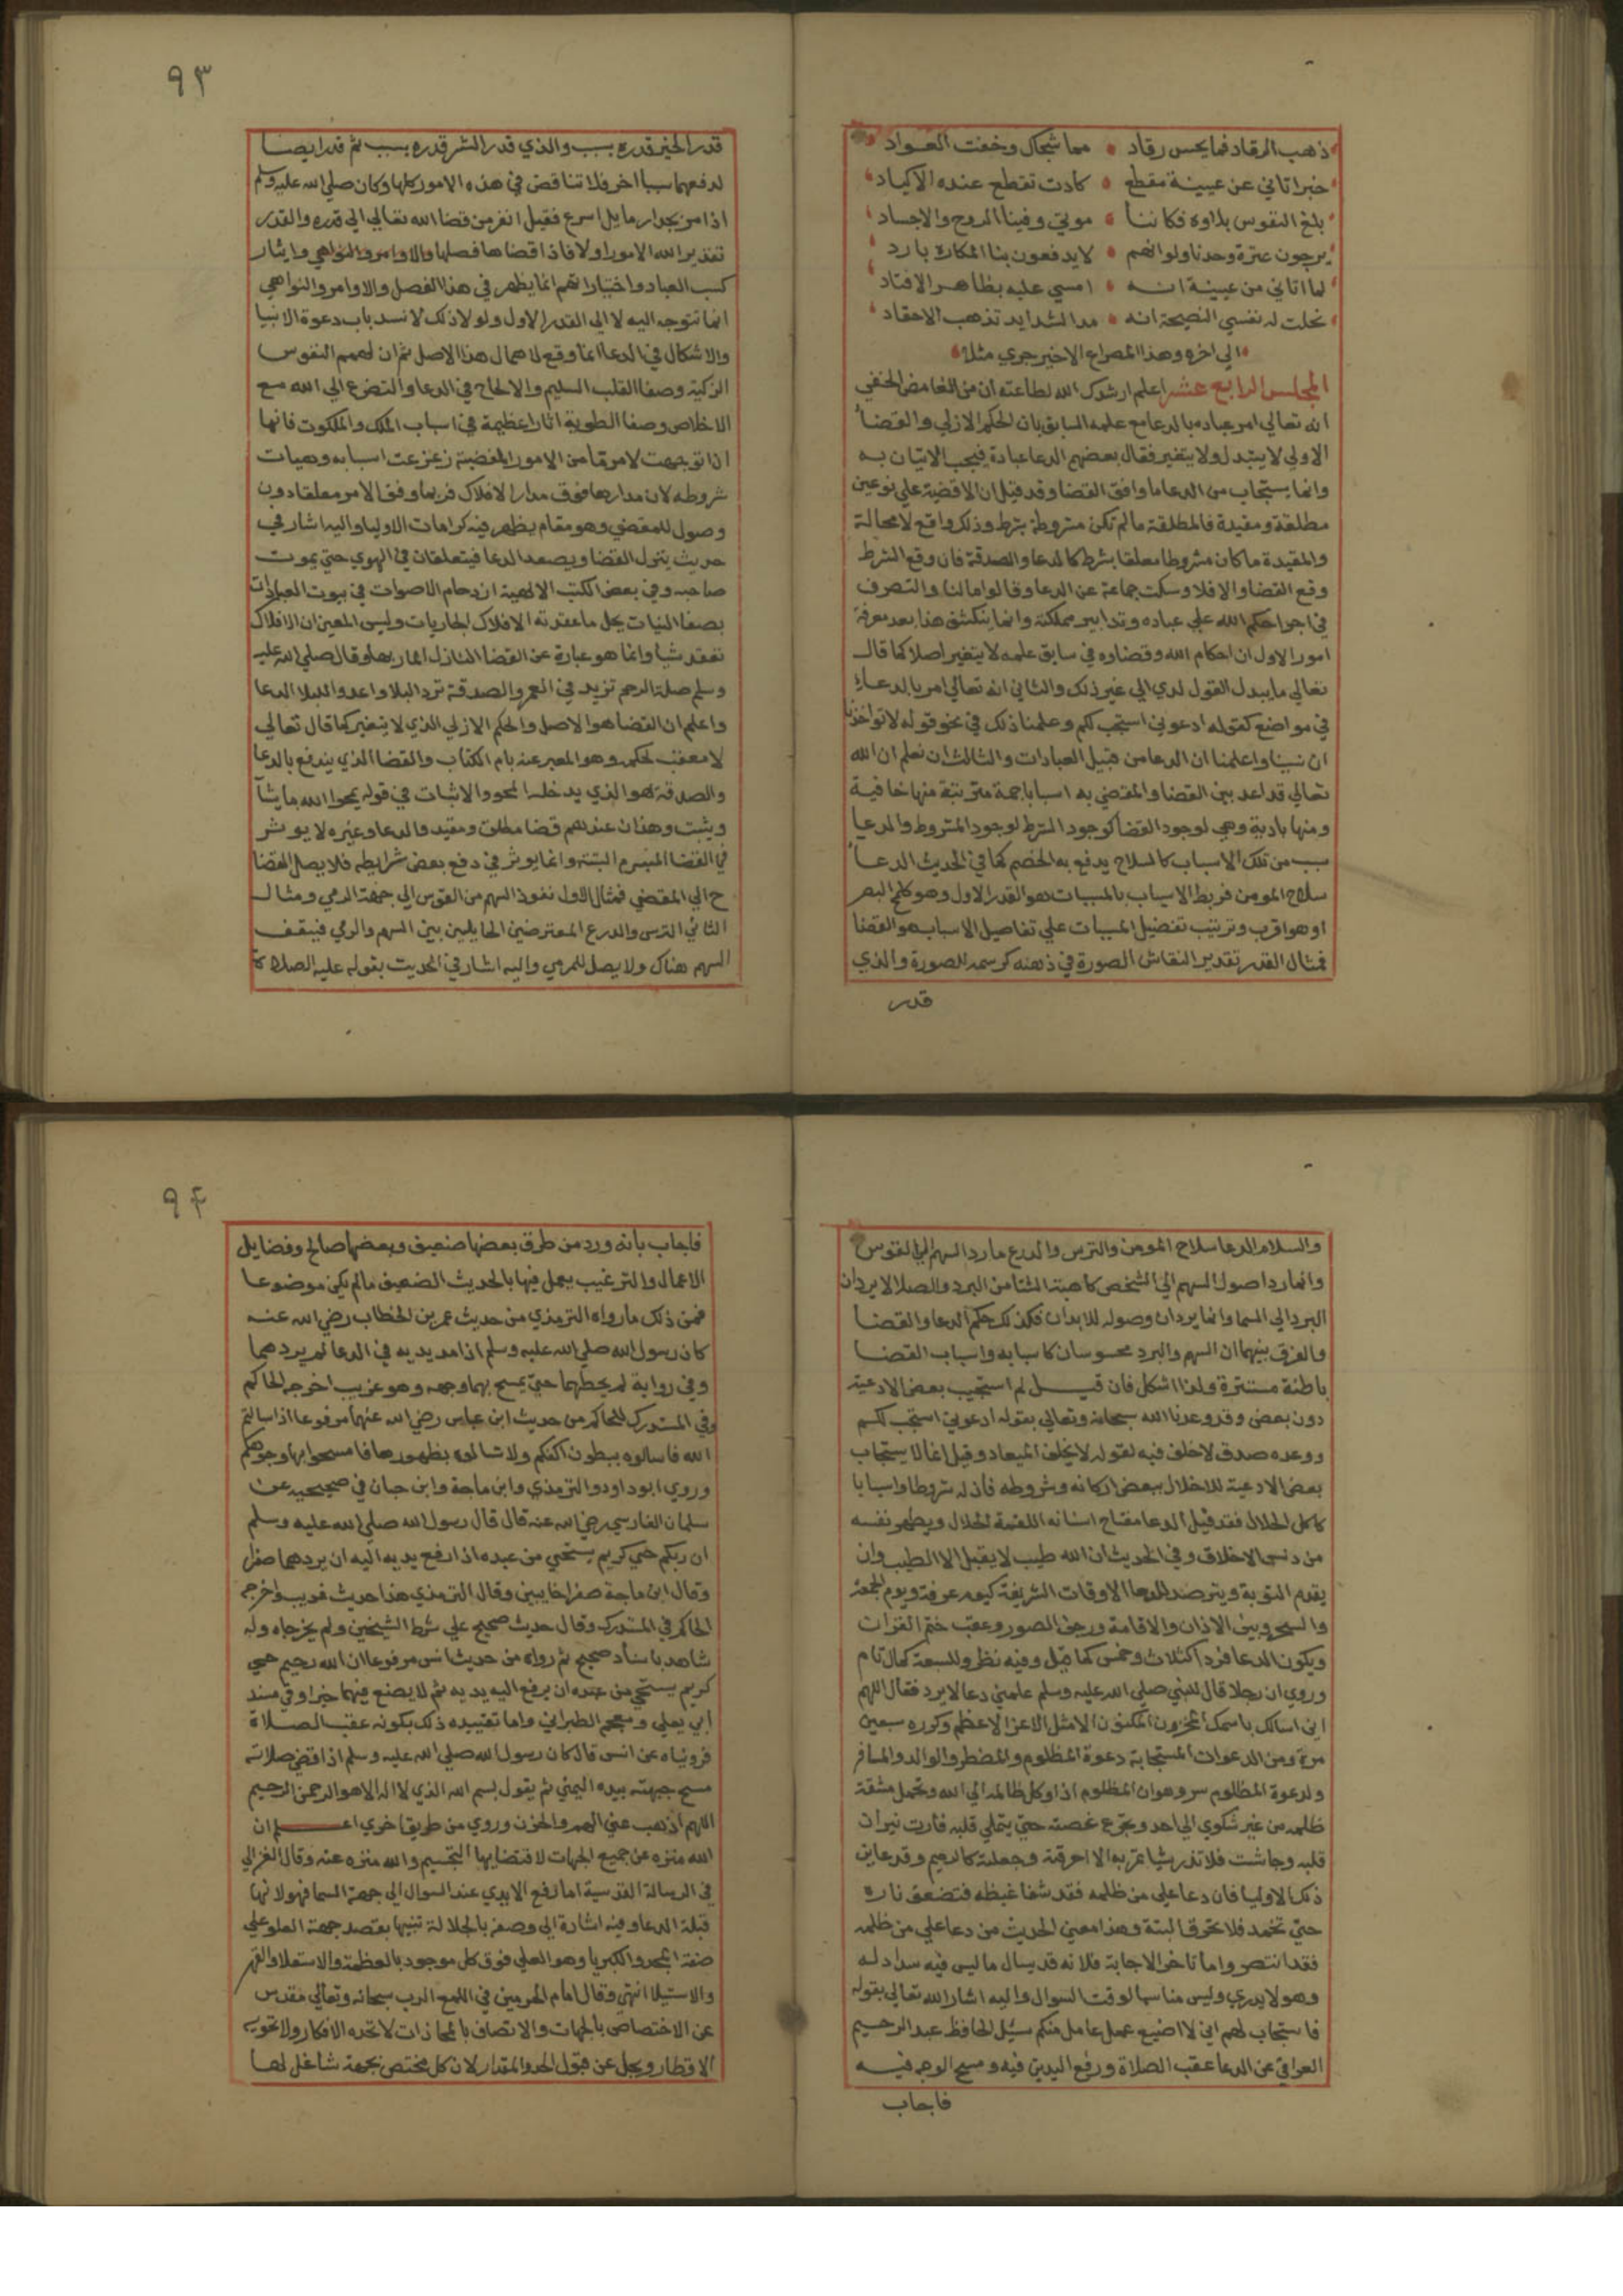 ذهب الرقاد فما يحس رقاد • مما شجاك وخفت العواد
خبر اتاني عن عيينة مقطع • كادت تقطع عنده الاكباد
بلغ النفوس بلاوه فكاننا • موتي وفينا الروح والاجساد
يرجون عثرة وحدنا ولو انهم • لا يدفعون بنا المكاره بارد
لما اتاني من عيينة انه • امسي عليه بظاهر الاقتاد
نخلت له نفسي النصيحة انه • عند الشدايد تذهب الاحقاد
الي اخره وهذا المصراع الاخير جري مثلا
المجلس الرابع عشر اعلم ارشدك الله لطاعته ان من الغامض الخفي
انه تعالي امر عباده بالدعا مع علمه السابق بان الحكم الازلي والقضا
الاولي لا يتبدل ولا يتغير فقال بعضهم الدعا عبادة فيجب الاتيان به
وانما يستجاب من الدعا ما وافق القضا وقد قيل ان الاقضية علي نوعين
مطلقة ومقيدة فالمطلقة ما لم تكن مشروطة بشرط وذلك واقع لا محالة
والمقيدة ما كان مشروطا معلقا بشرط كالدعا والصدقة فان وقع الشرط
وقع القضا والا فلا وسكت جماعة عن الدعا وقالوا ما لنا والتصرف
في اجرا حكم الله علي عباده وتدابير مملكته وانما ينكشف هذا بعد معرفة
امور الاول ان احكام الله وقضاوه في سابق علمه لا يتغير اصلا كما قال
تعالي ما يبدل القول لدي الي غير ذلك والثاني انه تعالي امر بالدعاء
في مواضع كقوله ادعوني استجب لكم وعلمنا ذلك في نحو قوله لا تواخذنا
ان نسينا واعلمنا ان الدعا من قبيل العبادات والثالث ان تعلم ان الله
تعالي قد اعد بين القضا والمقضي به اسبابا جمة مترتبة منها خافية
ومنها بادية وهي لوجود القضا كوجود الشرط لوجود المشروط والدعا
سبب من تلك الاسباب كالسلاح يدفع به الخصم كما في الحديث الدعا
سلاح المومن فربط الاسباب بالمسببات هو القدر الاول وهو كلمح البصر
او هو اقرب وترتيب تفضيل المسببات علي تفاصيل الاسباب هو القضا
فمثال القدر تقدير النقاش الصورة في ذهنه كرسمه للصورة والذي
قدر
٩٣
قدر الخير قدره بسبب والذي قدر الشر قدره بسبب ثم قدر ايضا
لدفعهما سببا اخر فلا تناقض في هذه الامور كلها وكان صلي الله عليه وسلم
اذا مر بجدار مايل اسرع فقيل اتفر من قضا الله تعالي الي قدره والقدر
تقدير الله الامور اولا فاذا قضاها فصلها والاوامر والنواهي وايثار
كسب العباد واختياراتهم انما يظهر في هذا الفصل والاوامر والنواهي
انما تتوجه اليه لا الي القدر الاول ولولا ذلك لانسد باب دعوة الانبيا
والاشكال في الدعا انما وقع لاهمال هذا الاصل ثم ان لهمم النفوس
الزكية وصفا القلب السليم والالحاح في الدعا والتضرع الي الله مع
الاخلاص وصفا الطوية اثارا عظيمة في اسباب الملك والملكوت فانها
اذا توجهت لامر ما من الامور المقضية زعزعت اسبابه وهيات
شروطه لان مدارها فوق مدار الافلاك فربما وقف الامر معلقا دون
وصول للمقضي وهو مقام يظهر فيه كرامات الاوليا واليه اشار في
حديث ينزل القضا ويصعد الدعا فيتعلقان في الهوي حتي يموت
صاحبه وفي بعض الكتب الالهية ازدحام الاصوات في بيوت العبادات
بصفا النيات يحل ما عقدته الافلاك الجاريات وليس المعني ان الافلاك
تعقد شيا وانما هو عبارة عن القضا النازل المار بها وقال صلي الله عليه
وسلم صلة الرحم تزيد في العمر والصدقة ترد البلا واعدوا للبلا الدعا
واعلم ان القضا هو الاصل والحكم الازلي الذي لا يتغير كما قال تعالي
لا معقب لحكمه وهو المعبر عنه بام الكتاب والقضا الذي يندفع بالدعا
والصدقة هو الذي يدخله المحو والاثبات في قوله يمحوا الله ما يشآ
ويثبت وهذان عندهم قضا مطلق ومقيد فالدعا وغيره لا يوثر
في القضا المبرم البتة وانما يوثر في دفع بعض شرايطه فلا يصل القضا
ح الي المقضي فمثال الاول نفوذ السهم من القوس الي جهة الرمي ومثال
الثاني الترس والدرع المعترضين الحايلين بين السهم والرمي فيقف
السهم هناك ولا يصل للمرمي واليه اشار في الحديث بقوله عليه الصلاة
والسلام الدعا سلاح المومن والترس والدرع ما رد السهم الي القوس
وانما ردا صول السهم الي الشخص كاهبة الشتا من البرد والصلا لا يردان
البرد الي السما وانما يردان وصوله للابدان فكذلك حكم الدعا والقضا
والفرق بينهما ان السهم والبرد محسوسان كاسبابه واسباب القضا
باطنة مستترة ولذا اشكل فان قيل لم استجيب بعض الادعية
دون بعض وقد وعدنا الله سبحانه وتعالي بقوله ادعوني استجب لكم
ووعده صدق لا خلف فيه لقوله لا يخلف الميعاد وقيل انما لا يستجاب
بعض الادعية للاخلال ببعض اركانه وشروطه فان له شروطا واسبابا
كاكل الحلال فقد قيل الدعا مفتاح اسنانه اللقمة الحلال ويطهر نفسه
من دنس الاخلاق وفي الحديث ان الله طيب لا يقبل الا الطيب وان
يقدم التوبة ويترصد للدعا الاوقات الشريفة كيوم عرفة ويوم الجمعة
والسحر وبين الاذان والاقامة وعقب ختم القران
ويكون الدعا فردا كثلاث وخمس كما قيل وفيه نظر وللسبعة كمال تام
وروي ان رجلا قال للنبي صلي الله عليه وسلم علمني دعا لا يرد فقال اللهم
اني اسالك باسمك المخزون المكنون الامثل الاعز الاعظم وكرره سبعين
مرة ومن الدعوات المستجابة دعوة المظلوم والمضطر والوالد والمسافر
ولدعوة المظلوم سر وهو ان المظلوم اذا وكل ظالمه الي الله وتحمل مشقة
ظلمه من غير شكوي الي احد وتجرع غصته حتي يمتلي قلبه فارت نيران
قلبه وجاشت فلا تذر شيا تمر به الا احرقته وجعلته كالرميم وقد عاين
ذلك الاوليا فان دعا علي من ظلمه فقد شفا غيظه فتضعف ناره
حتي تخمد فلا تحرق البتة وهذا معني الحديث من دعا علي من ظلمه
فقد انتصر واما تاخر الاجابة فلانه قد يسال ما ليس فيه سداد له
وهو لا يدري وليس مناسبا لوقت السوال واليه اشار الله تعالي بقوله
فاستجاب لهم اني لا اضيع عمل عامل منكم سئل الحافظ عبد الرحيم
العراقي عن الدعا عقب الصلاة ورفع اليدين فيه ومسح الوجه فيه
فاجاب
٩٤
فاجاب بانه ورد من طرق بعضها ضعيف وبعضها صالح وفضايل
الاعمال والترغيب يعمل فيها بالحديث الضعيف ما لم يكن موضوعا
فمن ذلك ما رواه الترمذي من حديث عمر بن الخطاب رضي الله عنه
كان رسول الله صلي الله عليه وسلم اذا مد يديه في الدعا لم يردهما
وفي رواية لم يحطهما حتي يمسح بهما وجهه وهو غريب اخرجه الحاكم
وفي المستدرك للحاكم من حديث ابن عباس رضي الله عنهما مرفوعا اذا سالتم
الله فاسالوه ببطون اكفكم ولا تسالوه بظهورها فامسحوا بها وجوهكم
وروي ابو داود والترمذي وابن ماجة وابن حبان في صحيحيه عن
سلمان الفارسي رضي الله عنه قال قال رسول الله صلي الله عليه وسلم
ان ربكم حيي كريم يستحيي من عبده اذا رفع يديه اليه ان يردهما صفرا
وقال ابن ماجة صفرا خايبين وقال الترمذي هذا حديث غريب واخرجه
الحاكم في المستدرك وقال حديث صحيح علي شرط الشيخين ولم يخرجاه وله
شاهد باسناد صحيح ثم رواه من حديث انس مرفوعا ان الله رحيم حيي
كريم يستحي من عبده ان يرفع اليه يديه ثم لا يضع فيهما خيرا وفي مسند
أبي يعلي ومعجم الطبراني واما تقييده ذلك بكونه عقب الصلاة
فروياه عن انس قال كان رسول الله صلي الله عليه وسلم اذا قضي صلاته
مسح جبهته بيده اليمني ثم يقول بسم الله الذي لا اله الا هو الرحمن الرحيم
اللهم اذهب عني الهم والحزن وروي من طريق اخري اعلم ان
الله منزه عن جميع الجهات لاقتضايها التجسيم والله منزه عنه وقال الغزالي
في الرسالة القدسية اما رفع الايدي عند السوال الي جهة السما فهو لانها
قبلة الدعا وفيه اشارة الي وصفه بالجلالة تنبيها بقصد جهة العلو علي
صفة المجد والكبريا وهو العلي فوق كل موجود بالعظمة والاستعلا والقهر
والاستيلا انتهي وقال امام الحرمين في اللمع الرب سبحانه وتعالي مقدس
عن الاختصاص بالجهات والاتصاف بالمحاذات لا تحده الافكار ولا تحويه
الاقطار ويجل عن قبول الحد والمقدار لان كل مختص بجهة شاغل لها